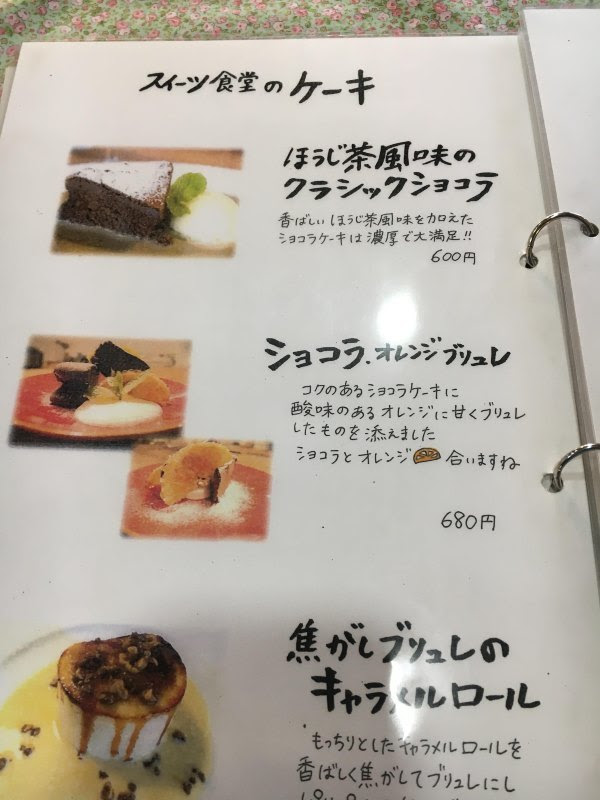 スイーツ食堂のケーキ
ほうじ茶風味の
クラシックショコラ
香ばしいほうじ茶風味を加えた
ショコラケーキは濃厚で大満足!!
600円
ショコラ.オレンジブリュレ
コクのあるショコラケーキに
酸味のあるオレンジに甘くブリュレ
したものを添えました
ショコラとオレンジ 合いますね
680円
焦がしブリュレの
キャラメルロール
もっちりとしたキャラメルロールを
香ばしく焦がしてブリュレにし